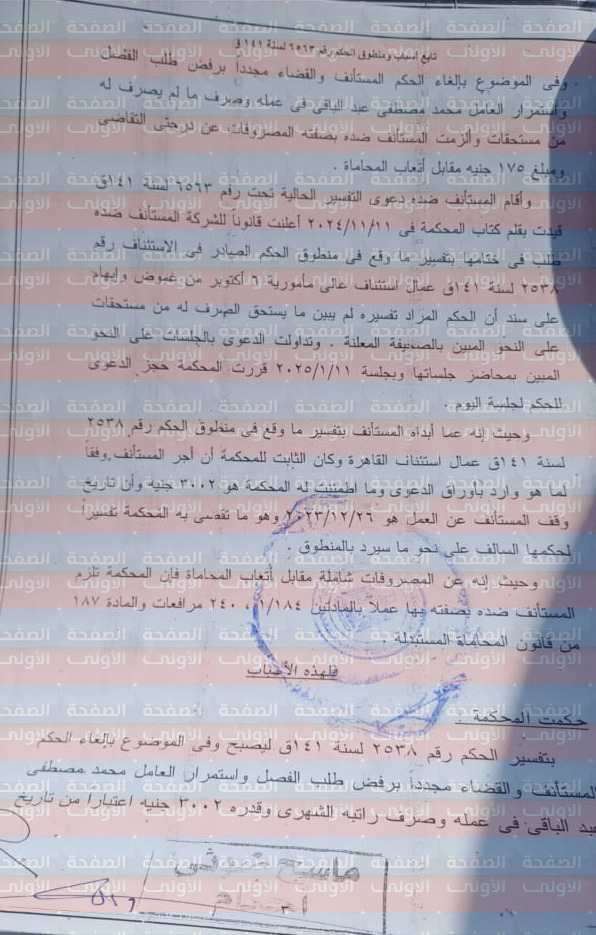 تابع أسباب ومنطوق الحكم رقم ٦٥٦٣ لسنة ١٤١ ق
وفى الموضوع بإلغاء الحكم المستأنف والقضاء مجدداً برفض طلب الفصل
واستمرار العامل محمد مصطفى عبد الباقى فى عمله وصرف ما لم يصرف له
من مستحقات وألزمت المستأنف ضده بصفته المصروفات عن درجتى التقاضى
ومبلغ ١٧٥ جنيه مقابل أتعاب المحاماة .
وأقام المستأنف ضده دعوى التفسير الحالية تحت رقم ٦٥٦٣ لسنة ١٤١ق
قيدت بقلم كتاب المحكمة فى ٢٠٢٤/١١/١١ أعلنت قانوناً للشركة المستأنف ضده
طلب فى ختامها بتفسير ما وقع فى منطوق الحكم الصادر فى الاستئناف رقم
٢٥٣٨ لسنة ١٤١ق عمال استئناف عالى مأمورية ٦ أكتوبر من غموض وإبهام
على سند أن الحكم المراد تفسيره لم يبين ما يستحق الصرف له من مستحقات
على النحو المبين بالصحيفة المعلنة . وتداولت الدعوى بالجلسات على النحو
المبين بمحاضر جلساتها وبجلسة ٢٠٢٥/١/١١ قررت المحكمة حجز الدعوى
للحكم لجلسة اليوم .
وحيث إنه عما أبداه المستأنف بتفسير ما وقع فى منطوق الحكم رقم ٢٥٣٨
لسنة ١٤١ق عمال استئناف القاهرة وكان الثابت للمحكمة أن أجر المستأنف وفقاً
لما هو وارد بأوراق الدعوى وما اطمئنت له المحكمة هو ٣٠٠٢ جنيه وأن تاريخ
وقف المستأنف عن العمل هو ٢٠٢٣/١٢/٢٦ وهو ما تقضى به المحكمة تفسيراً
لحكمها السالف على نحو ما سيرد بالمنطوق .
وحيث إنه عن المصروفات شاملة مقابل أتعاب المحاماة فإن المحكمة تلزم
المستأنف ضده بصفته بها عملاً بالمادتين ١/١٨٤ ، ٢٤٠ مرافعات والمادة ١٨٧
من قانون المحاماة المستبدلة .
فلهذه الأسباب
حكمت المحكمة
بتفسير الحكم رقم ٢٥٣٨ لسنة ١٤١ق ليصبح وفى الموضوع بإلغاء الحكم
المستأنف والقضاء مجدداً برفض طلب الفصل واستمرار العامل محمد مصطفى
عبد الباقى فى عمله وصرف راتبه الشهرى وقدره ٣٠٠٢ جنيه اعتباراً من تاريخ